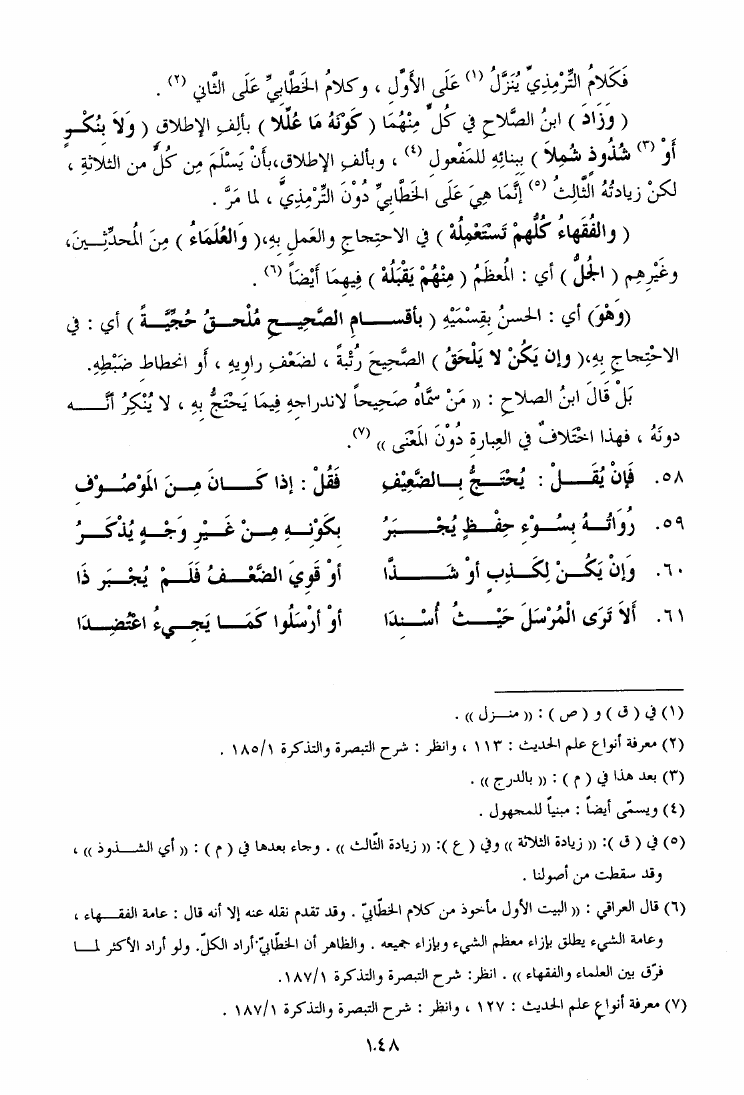 فَكَلامُ التِّرْمِذِيِّ يُنَزَّلُ (١) عَلَى الأَوَّلِ ، وكلامُ الخَطَّابِيِّ عَلَى الثَّانِي (٢) .
( وَزَادَ ) ابنُ الصَّلاحِ في كُلٍّ مِنْهُمَا ( كَوْنَهُ مَا عُلِّلا ) بألفِ الإطلاقِ ( وَلاَ بِنُكْرٍ
أَوْ (٣) شُذُوذٍ شُمِلاَ ) ببنائِهِ للمَفْعولِ (٤) ، وبألفِ الإطلاقِ،بأَنْ يَسْلَمَ مِن كُلٍّ من الثلاثةِ ،
لكنْ زيادتُهُ الثَّالِثُ (٥) إنَّمَا هِيَ عَلَى الخَطَّابِيِّ دُوْنَ التِّرْمِذِيِّ ، لما مَرَّ .
( والفُقَهَاءُ كُلُّهمْ تَسْتَعْمِلُهْ ) في الاحتِجاجِ والعَملِ بِهِ،( وَالعُلَمَاءُ ) مِنَ المُحدِّثِينَ،
وغَيْرِهِم ( الجُلُّ ) أي : المُعظَمُ ( مِنْهُمْ يَقْبَلُهْ ) فيهِمَا أَيْضَاً (٦) .
(وَهْوَ) أي : الحسنُ بقِسْمَيْهِ ( بأَقْسامِ الصَّحِيحِ مُلْحَقُ حُجِّيَّةً ) أي : في
الاحْتِجاجِ بِهِ،( وإن يَكُنْ لا يَلْحَقُ ) الصَّحِيحَ رُتْبةً ، لضَعْفِ راويهِ ، أو انحطاطِ ضَبْطِهِ.
بَلْ قَالَ ابنُ الصلاحِ : (( مَنْ سَمَّاهُ صَحِيحاً لاندراجِهِ فِيمَا يَحْتَجُّ بِهِ ، لا يُنْكِرُ أنَّه
دونَهُ ، فهذا اخْتلافٌ في العِبارةِ دُوْنَ المَعْنَى )) (٧).
٥٨. فَإنْ يُقَلْ : يُحْتَجُّ بالضَّعِيْفِ فَقُلْ : إذا كَانَ مِنَ المَوْصُوْفِ
٥٩. رُوَاتُهُ بِسُوْءِ حِفْظٍ يُجْبَرُ بِكَوْنِهِ مِنْ غَيْرِ وَجْهٍ يُذْكَرُ
٦٠. وَإنْ يَكُنْ لِكَذِبٍ أوْ شَذَّا أوْ قَوِيَ الضَّعْفُ فَلَمْ يُجْبَر ذَا
٦١. ألاَ تَرَى الْمُرْسَلَ حَيْثُ أُسْنِدَا أوْ أرْسَلُوا كَمَا يَجِيءُ اعْتُضِدَا
(١) في ( ق ) و ( ص ) : (( منزل )) .
(٢) معرفة أنواع علم الحديث : ١١٣ ، وانظر : شرح التبصرة والتذكرة ١٨٥/١ .
(٣) بعد هذا في ( م ) : (( بالدرج )) .
(٤) ويسمّى أيضاً : مبنياً للمجهول .
(٥) في ( ق ): (( زيادة الثلاثة )) وفي ( ع ): (( زيادة الثّالث )) . وجاء بعدها في ( م ) : (( أي الشذوذ )) ،
وقد سقطت من أصولنا .
(٦) قال العراقي : (( البيت الأول مأخوذ من كلام الخطّابيّ . وقد تقدم نقله عنه إلا أنه قال : عامة الفقهاء ،
وعامة الشيء يطلق بإزاء معظم الشيء وبإزاء جميعه . والظاهر أن الخطّابيّ أراد الكلّ. ولو أراد الأكثر لما
فرّق بين العلماء والفقهاء )) . انظر: شرح التبصرة والتذكرة ١٨٧/١.
(٧) معرفة أنواع علم الحديث : ١٢٧ ، وانظر : شرح التبصرة والتذكرة ١٨٧/١ .
١٠٤٨